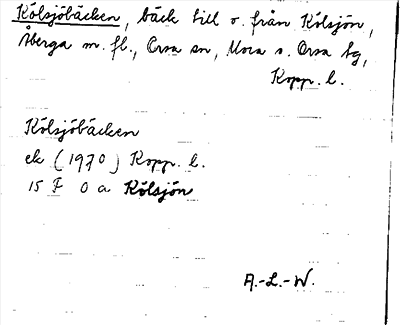 Kölsjöbäcken, bäck till o. från Kölsjön,
Åberga m. fl., Orsa sn, Mora o. Orsa tg,
Kopp. l.
Kölsjöbäcken
ek (1970) Kopp. l.
15 F 0 a Kölsjön
A.-L.-W.